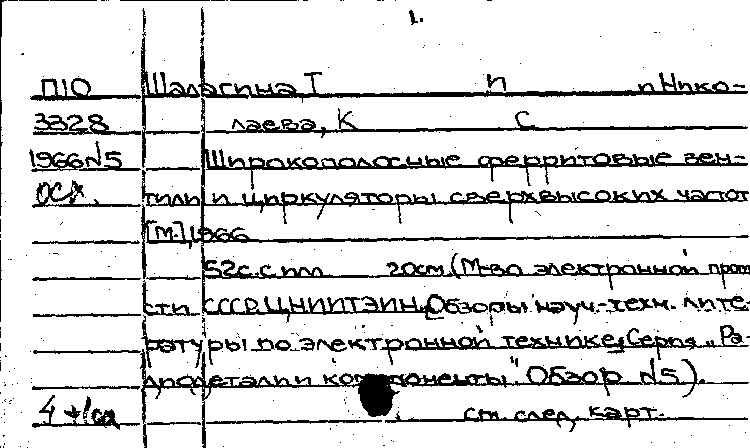 1.
П10 Шалагина, Т П и Нико-
3328 лаева, К С
1966 №5 Широкополосные ферритовые вен-
осх. тили и циркуляторы сверхвысоких частот
[М.], 1966
52с. с илл. 20см. (М-во электронной пром
сти СССР. ЦНИИТЭИН. Обзоры науч.-техн. лите-
ратуры по электронной технике. Серия „Ра-
диодетали и компоненты". Обзор №5).
4 + см. след. карт.